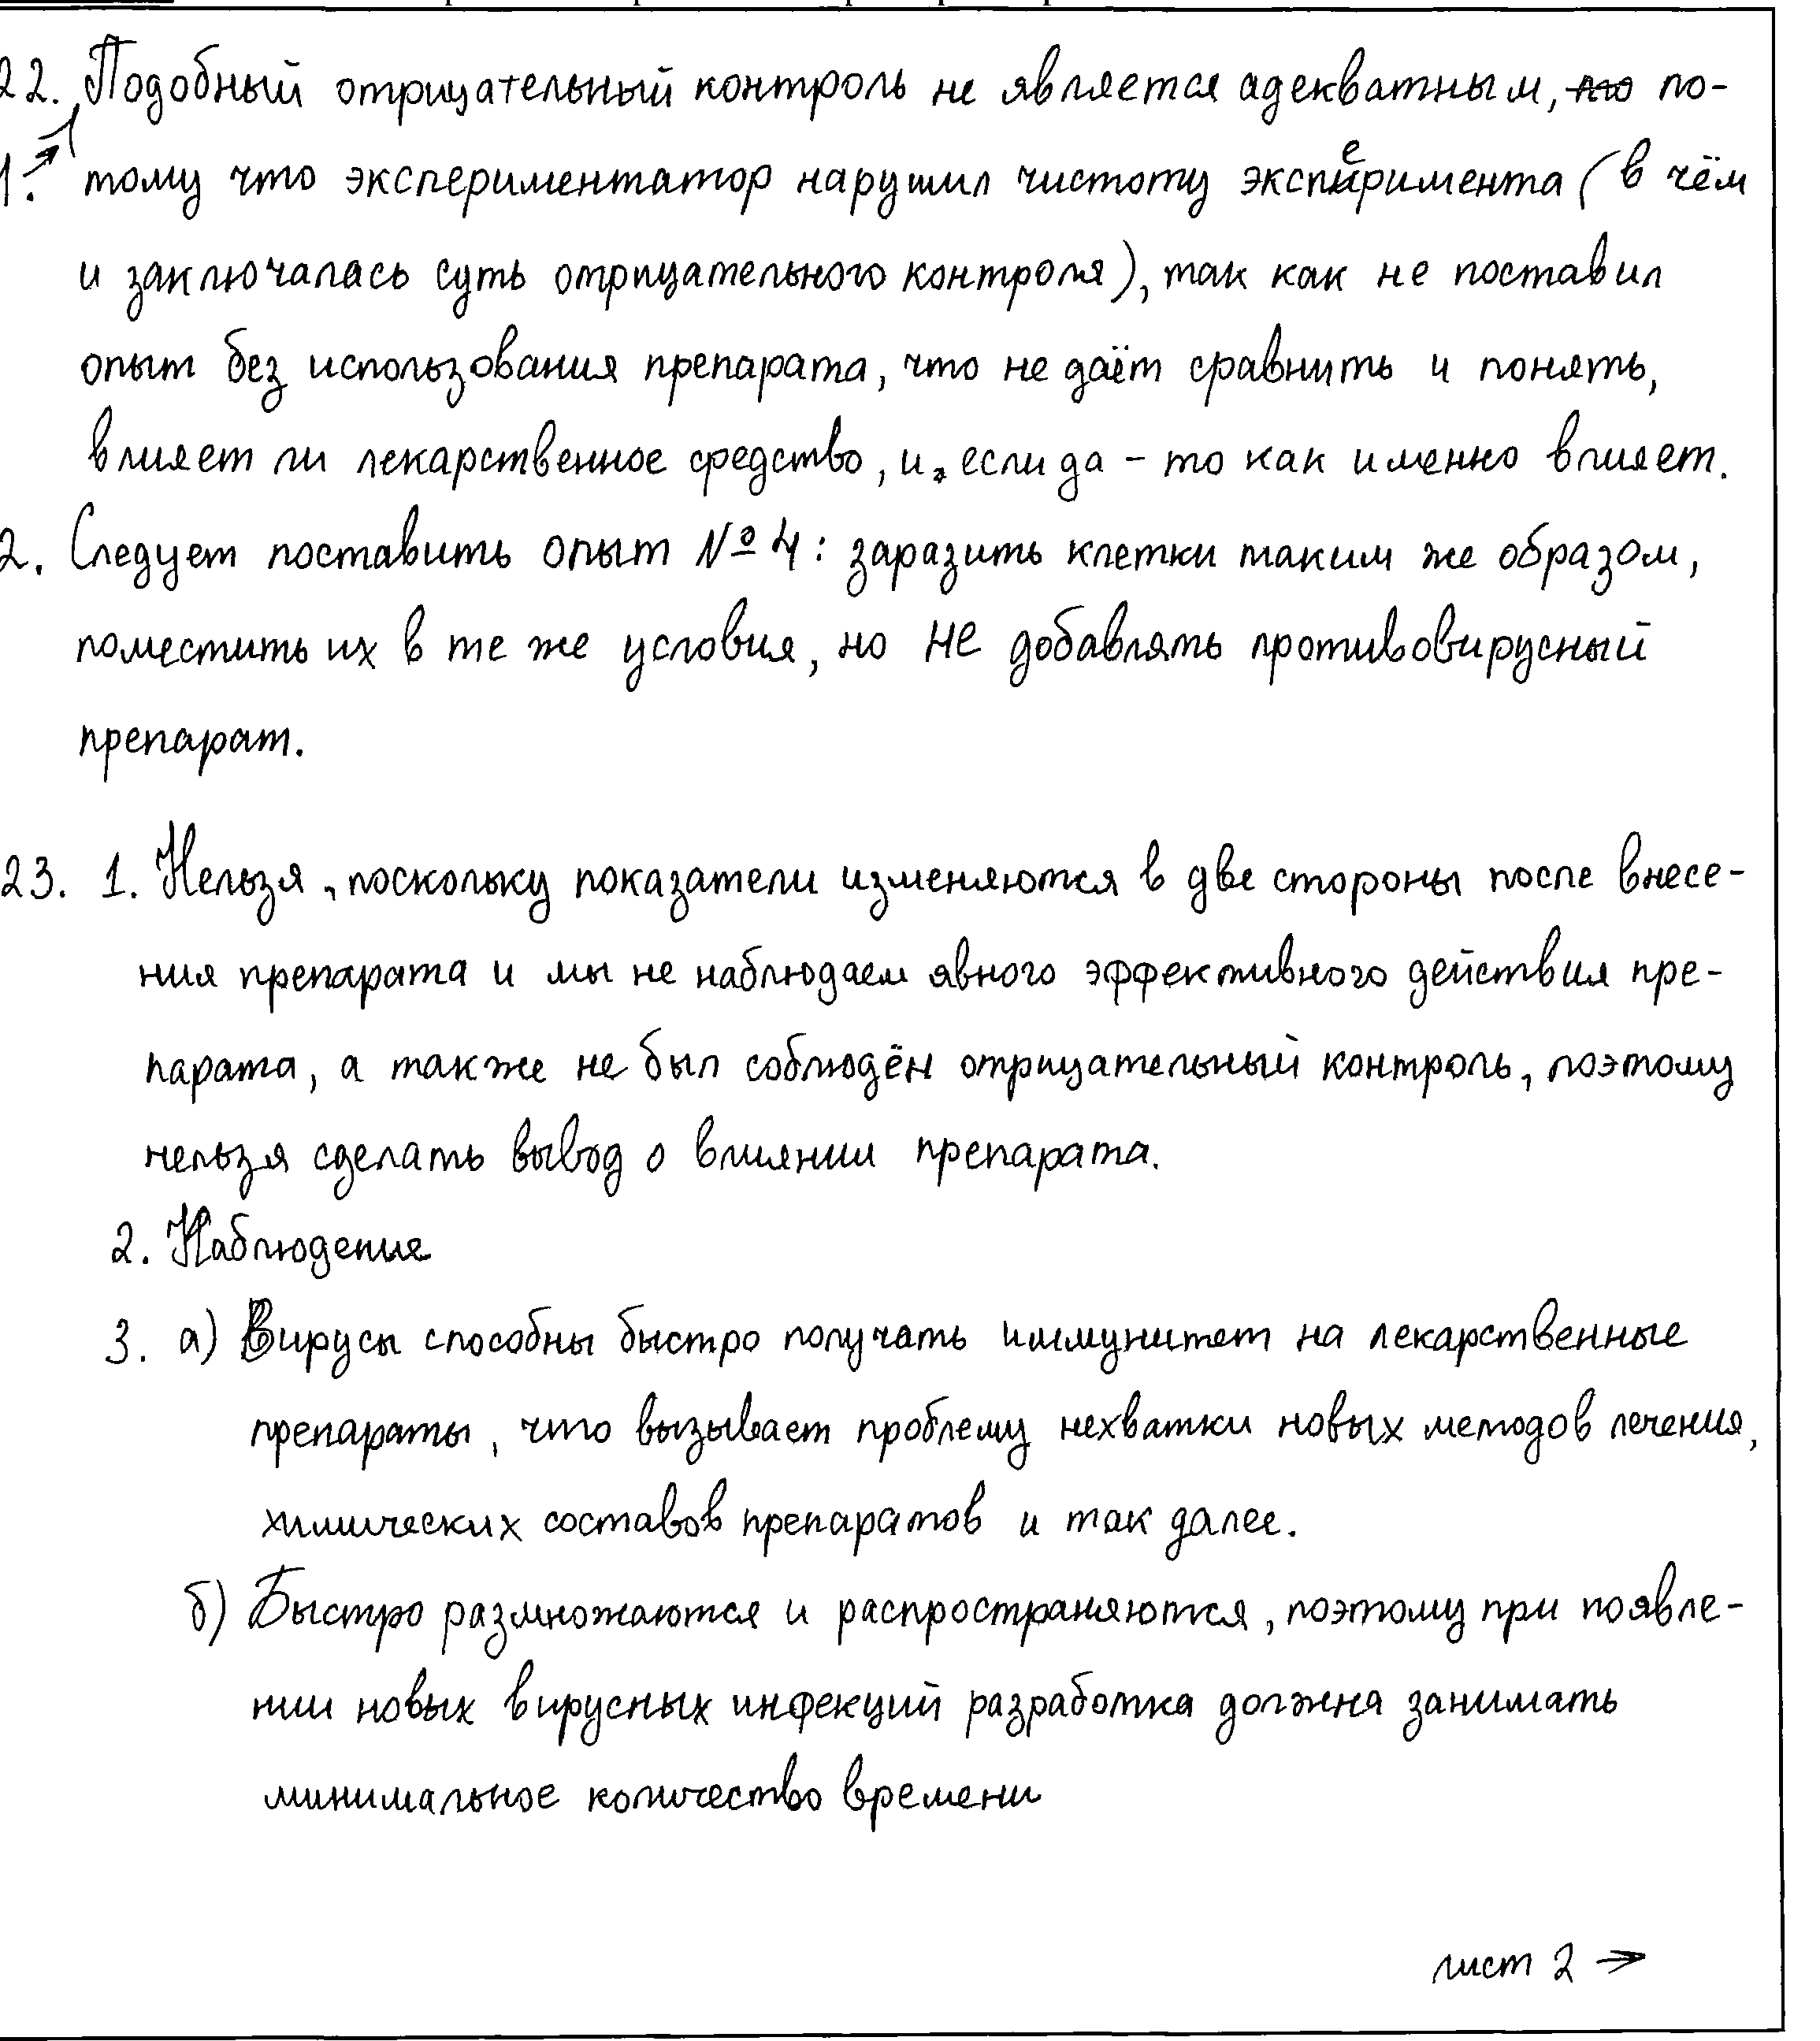 22. Подобный отрицательный контроль не является адекватным, по-
1. тому что экспериментатор нарушил чистоту эксперимента (в чём
и заключалась суть отрицательного контроля), так как не поставил
опыт без использования препарата, что не даёт сравнить и понять,
влияет ли лекарственное средство, и, если да – то как именно влияет.
2. Следует поставить опыт № 4: заразить клетки таким же образом,
поместить их в те же условия, но НЕ добавлять противовирусный
препарат.
23. 1. Нельзя, поскольку показатели изменяются в две стороны после внесе-
ния препарата и мы не наблюдаем явного эффективного действия пре-
парата, а также не был соблюдён отрицательный контроль, поэтому
нельзя сделать вывод о влиянии препарата.
2. Наблюдение
3. а) Вирусы способны быстро получать иммунитет на лекарственные
препараты, что вызывает проблему нехватки новых методов лечения,
химических составов препаратов и так далее.
б) Быстро размножаются и распространяются, поэтому при появле-
нии новых вирусных инфекций разработка должна занимать
минимальное количество времени
лист 2 →